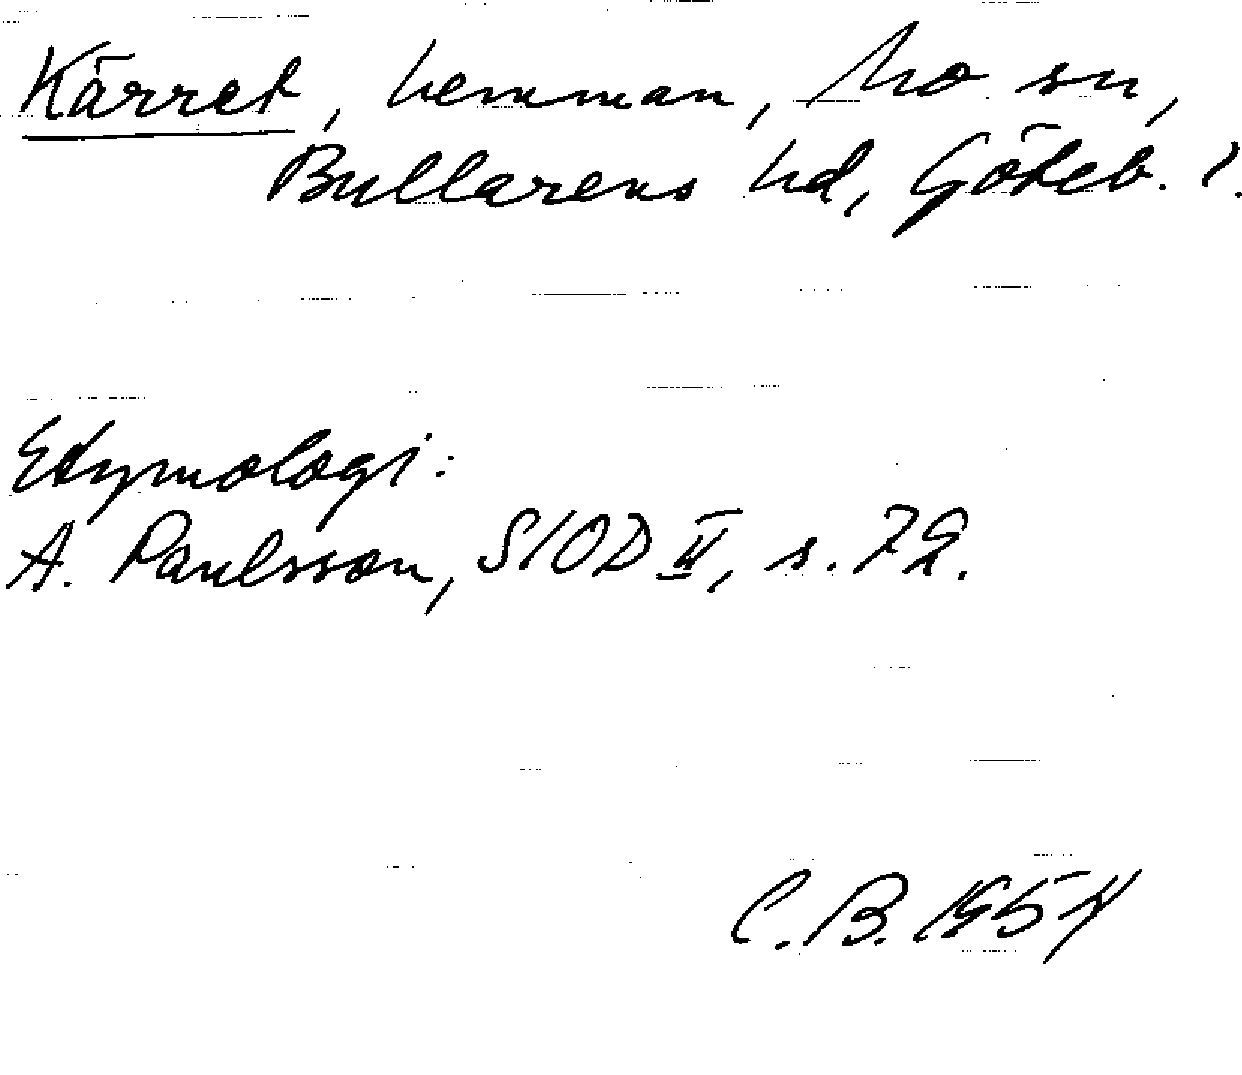 Kärret, hemman, Mo sn,
Bullarens hd, Göteb. l.
Etymologi:
A. Paulsson, SIOD II, s. 72.
C. B. 1954